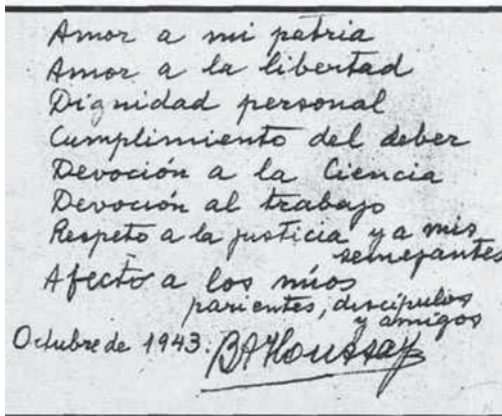 Amor a mi patria
Amor a la libertad
Dignidad personal
Cumplimiento del deber
Devoción a la Ciencia
Devoción al trabajo
Respeto a la justicia y a mis
semejantes
Afecto a los míos
parientes, discípulos
y amigos
Octubre de 1943. BAHoussay